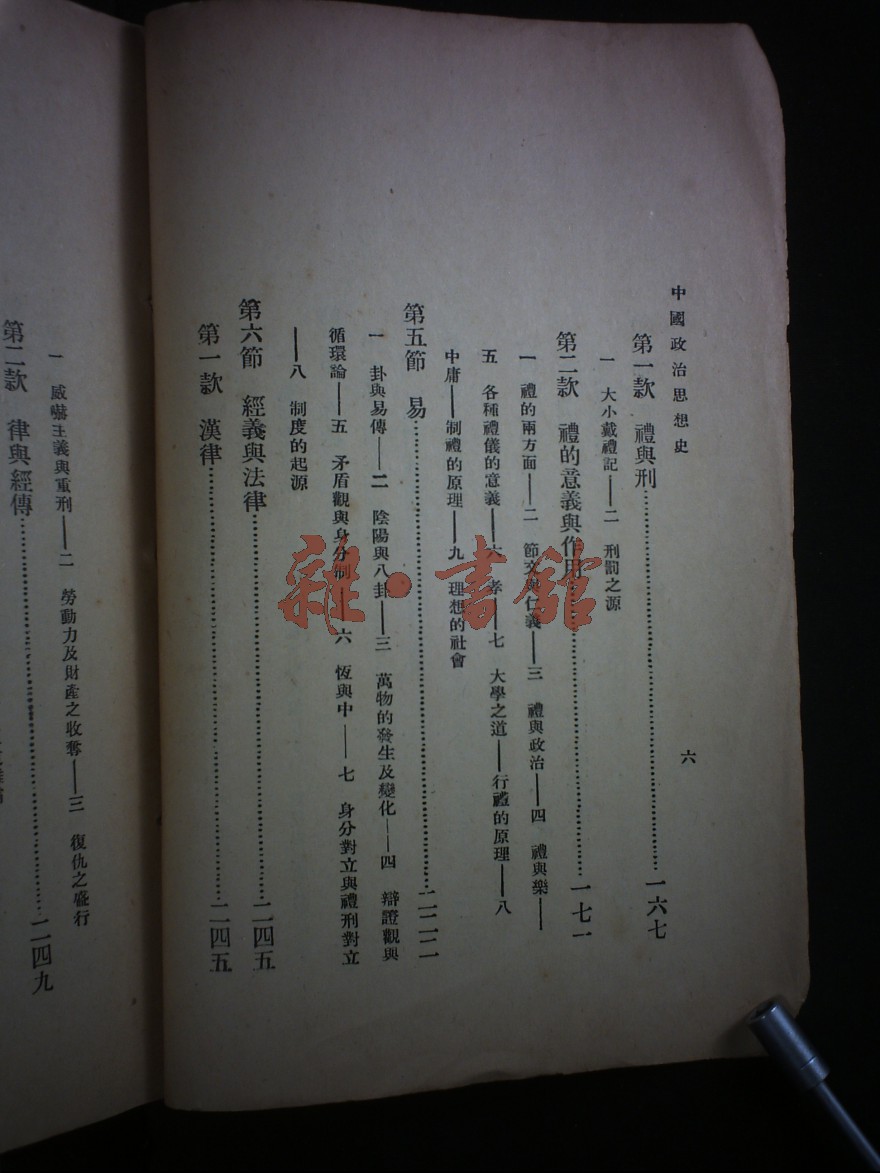 中國政治思想史
六
第一款　禮與刑……一六七
一　大小戴禮記——二　刑罰之源
第二款　禮的意義與作用……一七一
一　禮的兩方面——二　節文與仁義——三　禮與政治——四　禮與樂——
五　各種禮儀的意義——六　孝——七　大學之道——行禮的原理——八
中庸——制禮的原理——九　理想的社會
第五節　易……二二二
一　卦與易傳——二　陰陽與八卦——三　萬物的發生及變化——四　辯證觀與
循環論——五　矛盾觀與身分制——六　恆與中——七　身分對立與禮刑對立
——八　制度的起源
第六節　經義與法律……二四五
第一款　漢律……二四五
一　威嚇主義與重刑——二　勞動力及財產之收奪——三　復仇之盛行
第二款　律與經傳……二四九
雜·書館